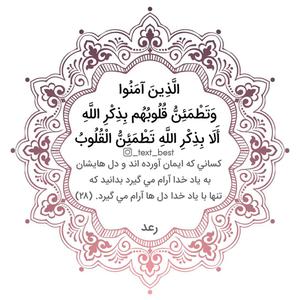 الَّذِينَ آمَنُوا
وَتَطْمَئِنُّ قُلُوبُهُم بِذِكْرِ اللَّهِ
أَلَا بِذِكْرِ اللَّهِ تَطْمَئِنُّ الْقُلُوبُ
_text_best
كساني كه ايمان آورده اند و دل هايشان
به ياد خدا آرام مي گيرد بدانيد كه
تنها با ياد خدا دل ها آرام مي گيرد. (۲۸)
رعد